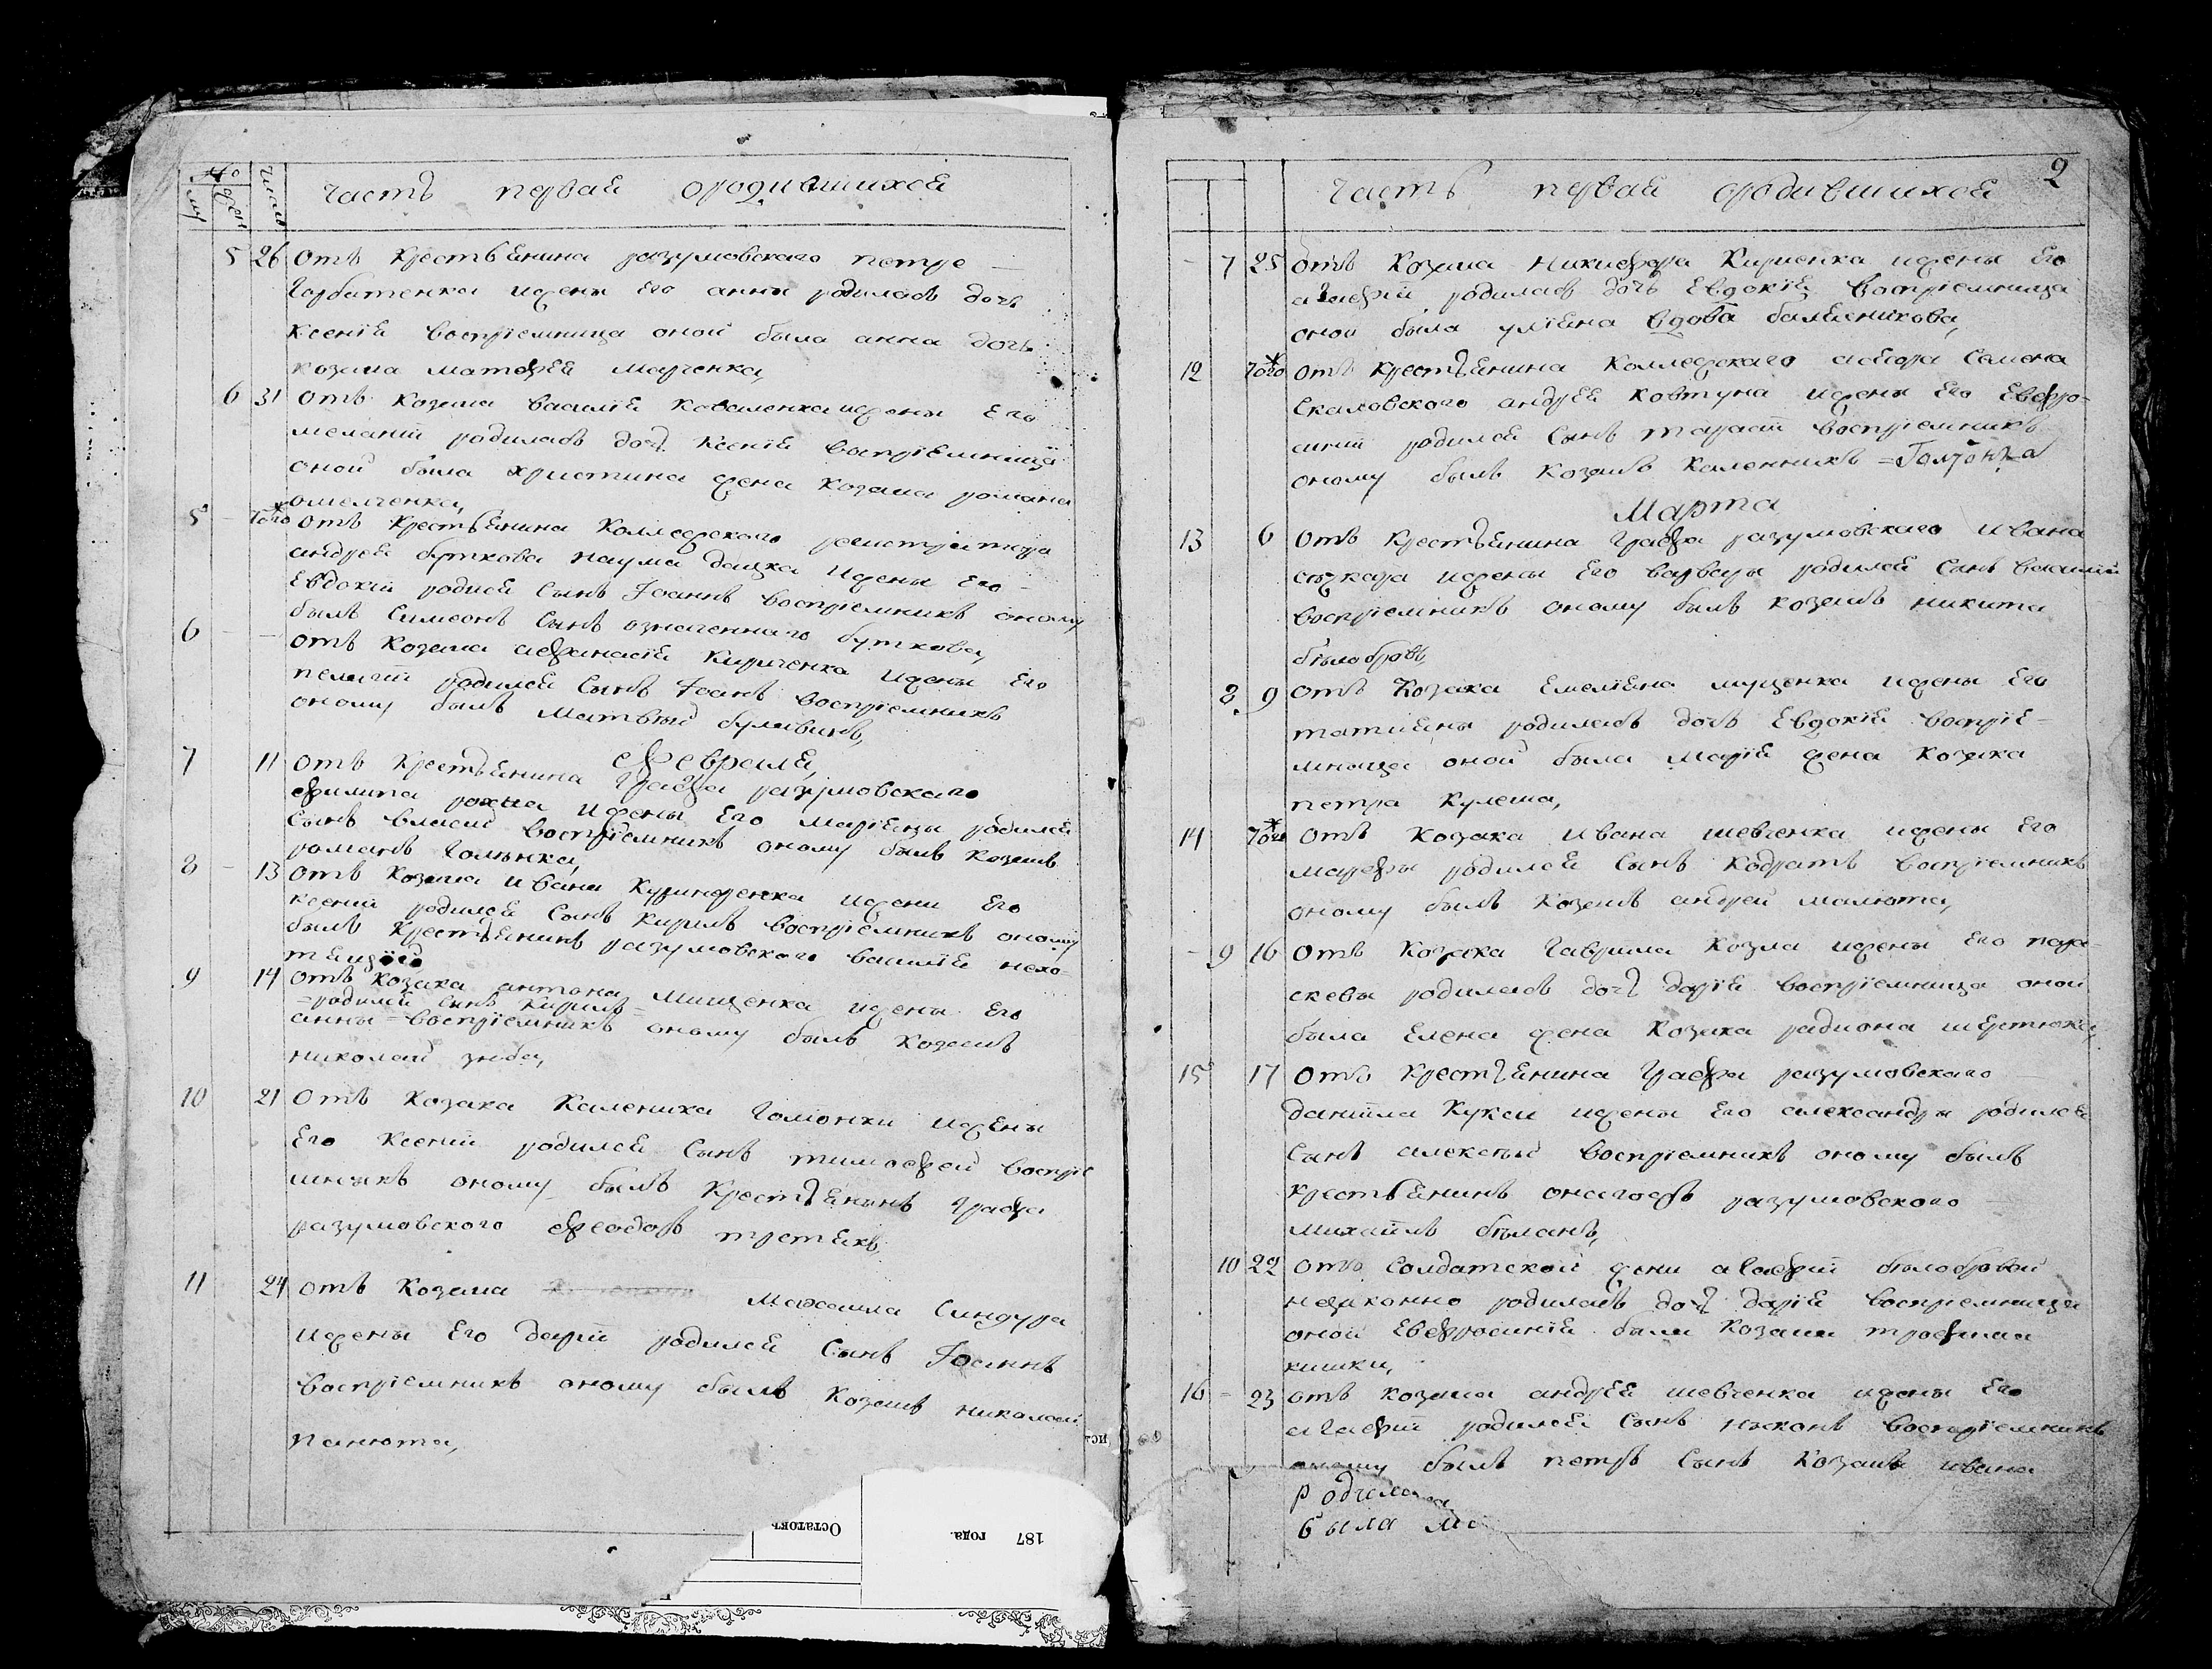 № числ
му жен
часть первая ородившихся
5 26 отъ крестьянина разумовского петра
Горбатенка ижены его анны родилась дочь
ксенія воспріемница оной была анна дочь
козака матфея марченка,
6 31 отъ козака василія коваленка ижены его
меланіи родилась дочь ксенія воспріемница
оной была христина жена козака романа
омелченка,
5 - того* отъ крестьянина коллежского регистратора
андрея буткова наума дацка ижены его
Евдокіи родися сынъ Іоаннъ воспріемникъ оному
былъ симеонъ сынъ означенного буткова,
6 - - отъ козака афанасія кириченка ижены его
пелагіи родился сынъ Іоанъ воспріемникъ
оному былъ матвѣй
февраля,
7 11 отъ крестьянина Графа разумовскаго
филипа ижены его родился
сынъ власій воспріемникъ оному былъ козакъ
романъ
8 - 13 отъ козака ивана ижены его
ксеніи родился сынъ кирилъ воспріемникъ оному
былъ крестьянинъ разумовского василій
9 14 отъ козака антона мищенка ижены его
=родился сынъ кирилъ=
анны = воспріемникъ оному былъ козакъ
николай
10 21 отъ козака каленика Гомонки ижены
его ксеніи родился сынъ тимофей воспріе
мникъ оному былъ крестьянинъ графа
разумовского феодоръ третякъ
11 24 отъ козака максима синдура
ижены его даріи родился сынъ Іоаннъ
воспріемникъ оному былъ козакъ николай
панюта,
Остатокъ
187 года.
2
часть первая ородившихся
- 7 25 отъ козака никифора кириенка ижены его
агафіи родилась дочь Евдокія воспріемница
оной была уліяна вдова
12 того* отъ крестьянина коллежского асесора семена
скаловского андрея ковтуна ижены его Евфро-
синіи родился сынъ тарасій воспріемникъ
оному былъ козакъ каленникъ =Гомонка
Марта
13 6 отъ крестьянина графа разумовскаго ивана
ижены его варвары родился сынъ василій
воспріемникъ оному былъ козакъ никита
бѣлобровъ,
8 9 отъ козака Емеліяна муценка ижены его
татіяны родилась дочь Евдокія воспріе-
мница оной была марія жена козака
петра кулеша,
14 того* отъ козака ивана шевченка ижены его
марфы родился сынъ кодратъ воспріемникъ
оному былъ козакъ андрей малюта,
- 9 16 отъ козака гаврила козла ижены его пара-
скевы родилась дочь дарія воспріемница оной
была Елена жена козака радиона шерстюка,
15 17 отъ крестьянина графа разумовского
даніила кукси ижены его александры родился
сынъ алексѣй воспріемникъ оному былъ
крестьянинъ онагожъ разумовского
михаилъ бѣланъ,
10 22 отъ солдатской жени агафіи бѣлобровой
незаконно родилась дочь дарія воспріемница
оной Евфросинія была козака трофима
кишки,
16 - 23 отъ козака андрея шевченка ижены его
агафіи родился сынъ никонъ воспріемникъ
оному былъ петръ сынъ козака ивана
родила
была